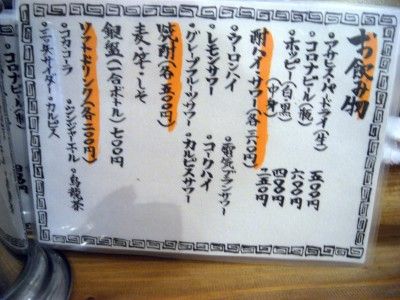 お飲み物
アサヒスーパードライ(生) 五〇〇円
コロナビール(瓶) 六〇〇円
ホッピー白黒 四〇〇円
(中身) 二五〇円
酎ハイ・サワー(各三八〇円)
ウーロンハイ
電気ブランサワー
レモンサワー
コーワハイ
グレープフルーツサワー
カルピスサワー
焼酎(各五〇〇円)
麦・芋・しそ
銀盤(二合ボトル) 七〇〇円
ソフトドリンク(各二〇〇円)
コカコーラ
ジンジャーエール
烏龍茶
三ツ矢サイダー
カルピス
コロナビール(瓶)